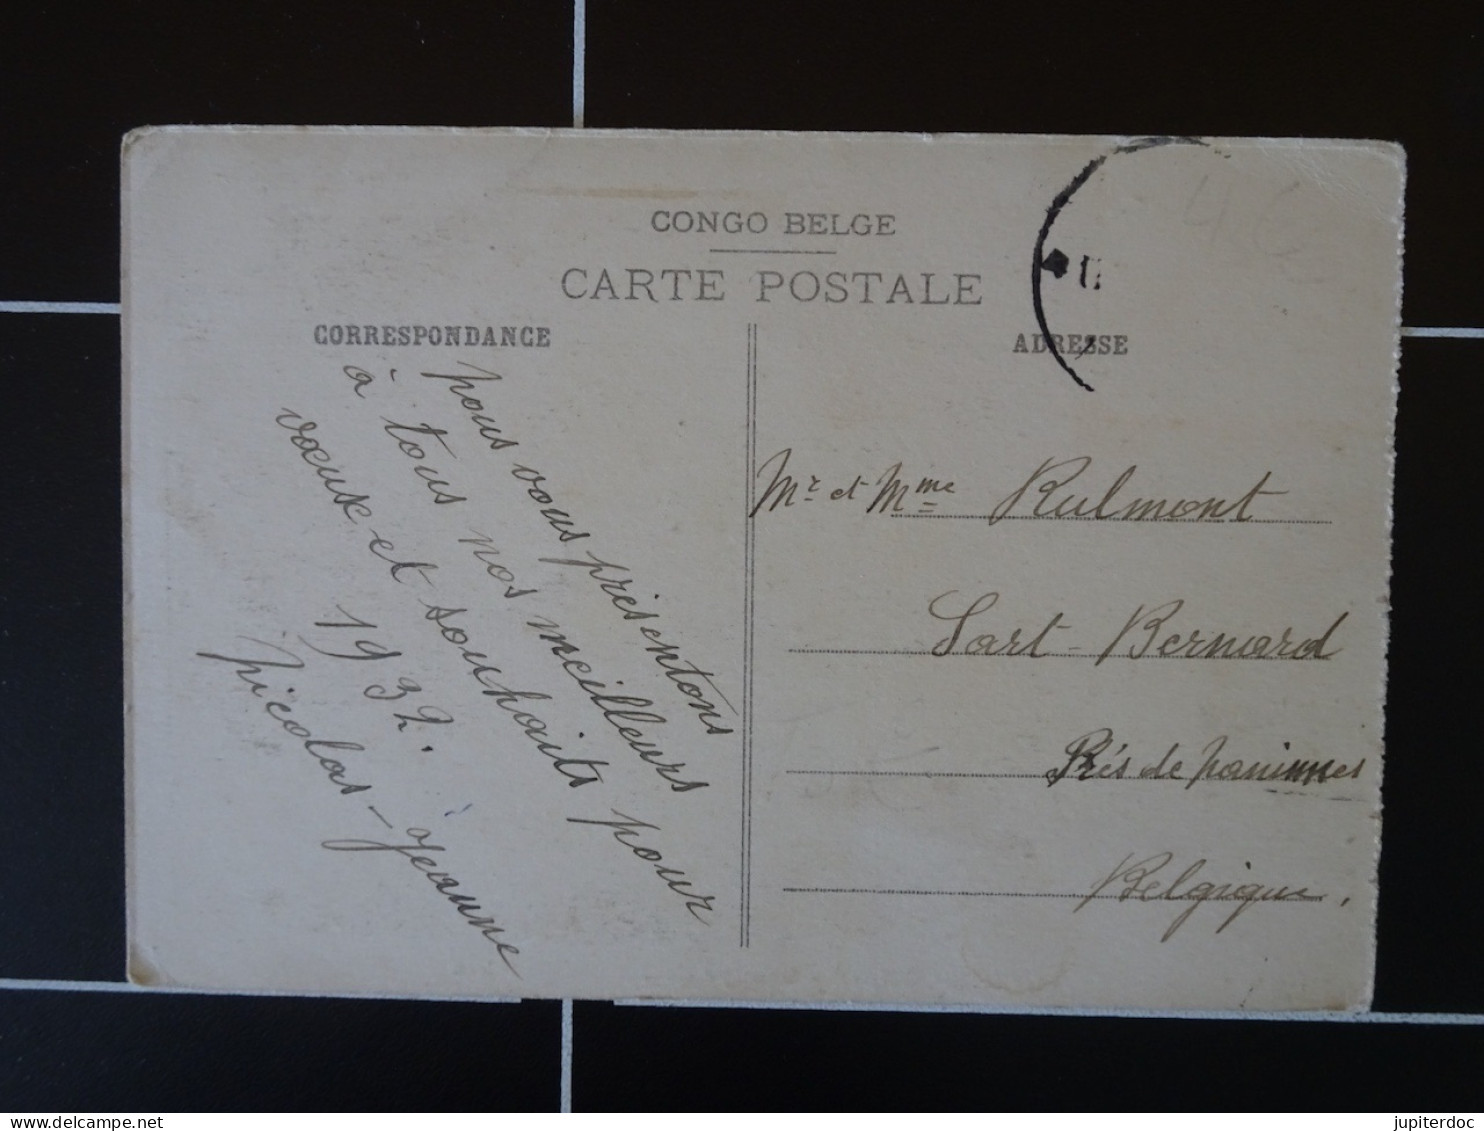 CONGO BELGE
CARTE POSTALE
CORRESPONDANCE
nous vous présentons
à tous nos meilleurs
vœux et souhaits pour
1932.
Nicolas - Jeanne
ADRESSE
Mr et Mme Rulmont
Sart-Bernard
Près de
Belgique.
4€
jupiterdoc